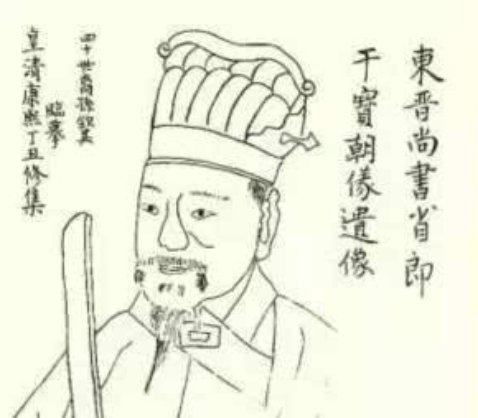 東晋尚書省郎
干寳朝像遺像
四十世裔孫
臨摹
皇清康熙丁丑修集